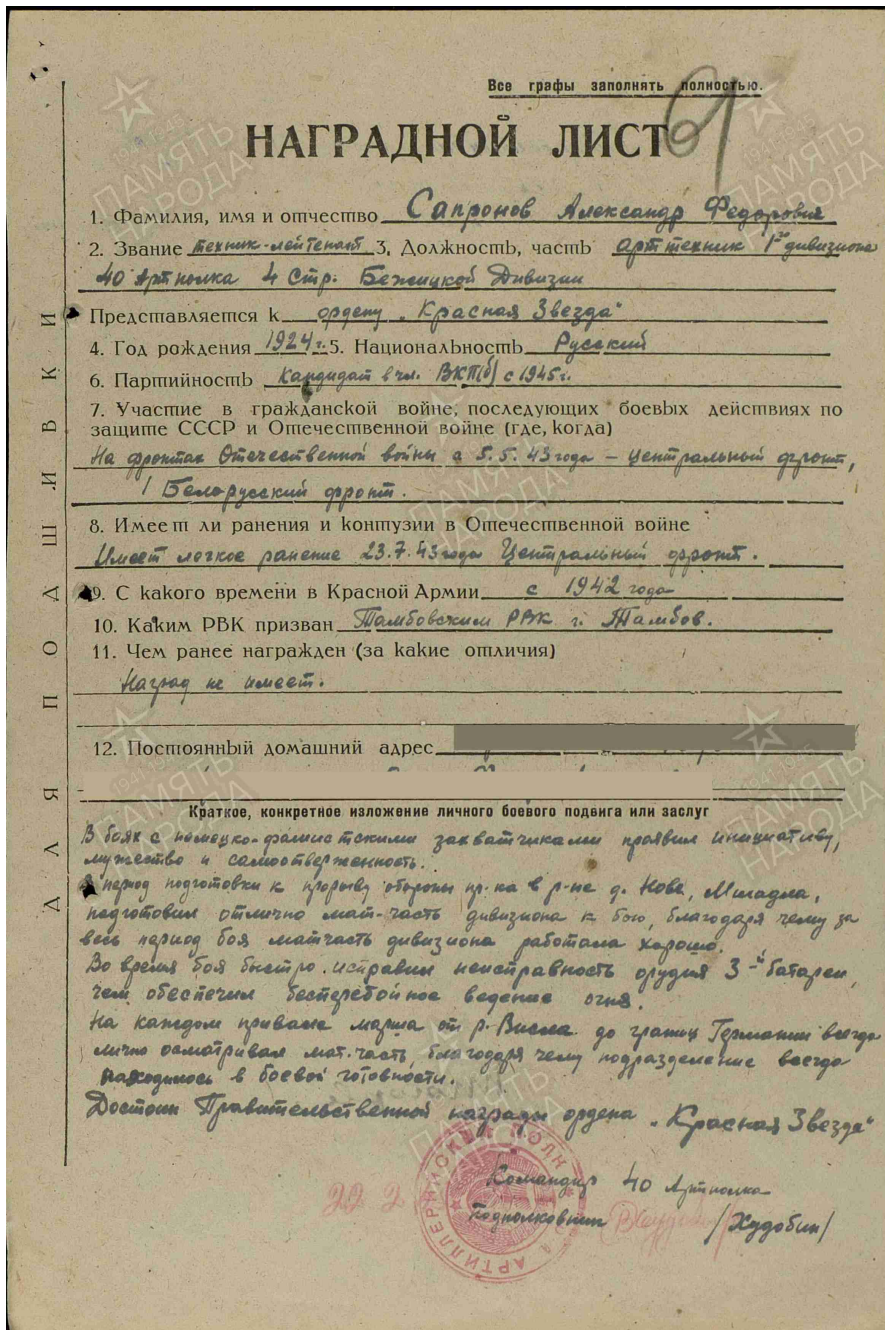 Все графы заполнять полностью.
НАГРАДНОЙ ЛИСТ
1. Фамилия, имя и отчество Сапронов Александр Федорович
2. Звание техник-лейтенант 3. Должность, часть арттехник 1го дивизиона
40 Артполка 4 Стр. Бежицкой Дивизии
Представляется к ордену „Красная Звезда"
4. Год рождения 1924 г. 5. Национальность Русский
6. Партийность Кандидат в чл. ВКП(б) с 1945 г.
7. Участие в гражданской войне, последующих боевых действиях по
защите СССР и Отечественной войне (где, когда)
На фронтах Отечественной войны с 5.5.43 года – Центральный фронт,
1 Белорусский фронт.
8. Имеет ли ранения и контузии в Отечественной войне
Имеет легкое ранение 23.7.43 года Центральный фронт.
9. С какого времени в Красной Армии с 1942 года
10. Каким РВК призван Тамбовским РВК г. Тамбов.
11. Чем ранее награжден (за какие отличия)
Наград не имеет.
12. Постоянный домашний адрес
Краткое, конкретное изложение личного боевого подвига или заслуг
В боях с немецко-фашистскими захватчиками проявил инициативу,
мужество и самоотверженность.
В период подготовки к прорыву обороны пр-ка в р-не д. Нове,
подготовил отлично мат-часть дивизиона к бою, благодаря чему за
весь период боя матчасть дивизиона работала хорошо.
Во время боя быстро исправил неисправность орудия 3-й батареи,
чем обеспечил бесперебойное ведение огня.
На каждом привале марша от р. Висла до границ Германии всегда
лично осматривал мат.часть, благодаря чему подразделение всегда
находилось в боевой готовности.
Достоин Правительственной награды ордена „Красная Звезда"
Командир 40 Артполка
Подполковник /Худобин/
АРТИЛЛЕРИЙСКИЙ ПОЛК
ДЛЯ ПОДШИВКИ
ПАМЯТЬ НАРОДА